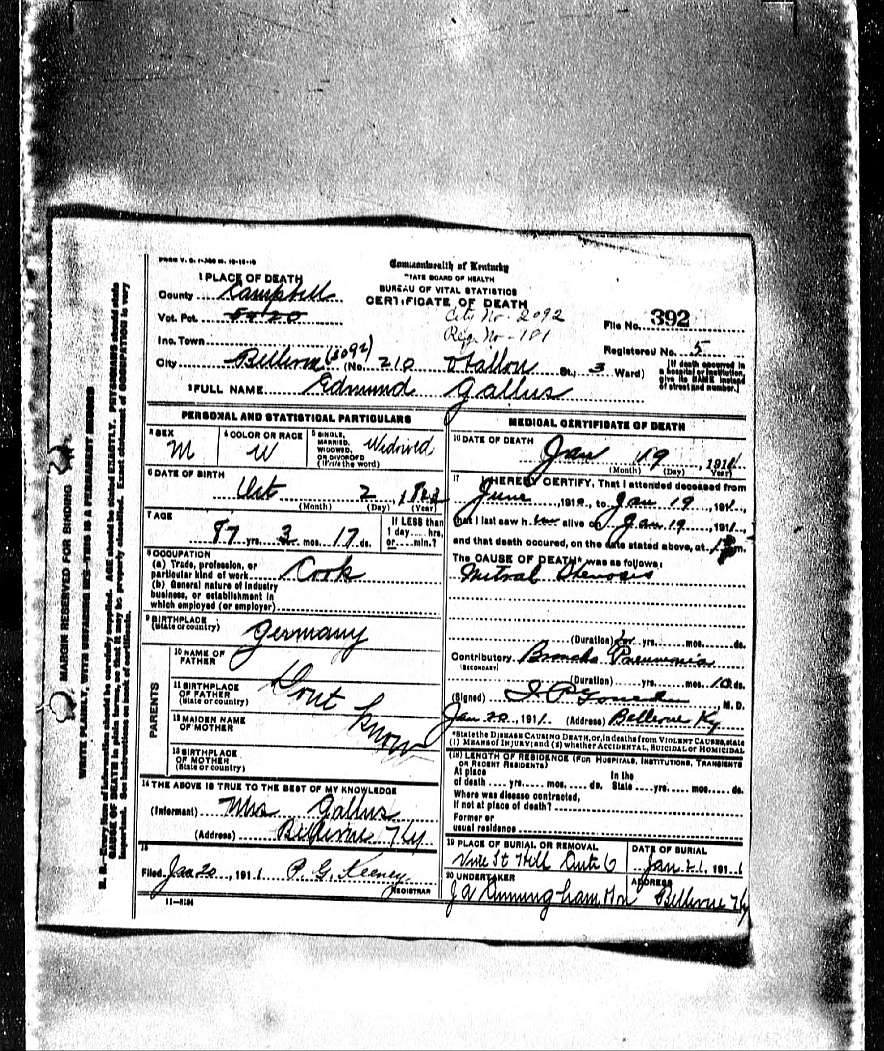 Commonwealth of Kentucky
STATE BOARD OF HEALTH
BUREAU OF VITAL STATISTICS
CERTIFICATE OF DEATH
1 PLACE OF DEATH
County Campbell
Vot. Pct. 5020
City No- 2092
Reg. No- 101
File No. 392
Inc. Town
Registered No. 5
City Bellevue (2092) (No. 210 St., 3 Ward)
[If death occurred in a hospital or institution, give its NAME instead of street and number.]
2 FULL NAME Edmund Gallus
PERSONAL AND STATISTICAL PARTICULARS
3 SEX M
4 COLOR OR RACE W
5 SINGLE, MARRIED, WIDOWED, OR DIVORCED (Write the word) Widowed
6 DATE OF BIRTH
Oct 2, 1823
(Month) (Day) (Year)
7 AGE
87 yrs. 3 mos. 17 ds.
If LESS than 1 day.... hrs. or.....min.?
8 OCCUPATION
(a) Trade, profession, or particular kind of work Cook
(b) General nature of industry
business, or establishment in
which employed (or employer)
9 BIRTHPLACE
(State or country) Germany
PARENTS
10 NAME OF FATHER
11 BIRTHPLACE OF FATHER (State or country)
Dont know
12 MAIDEN NAME OF MOTHER
13 BIRTHPLACE OF MOTHER (State or country)
14 THE ABOVE IS TRUE TO THE BEST OF MY KNOWLEDGE
(Informant) Mrs Gallus
(Address) Bellevue Ky
15
Filed Jan 20, 1911 P. G. Keeney
REGISTRAR
11-5184
MEDICAL CERTIFICATE OF DEATH
16 DATE OF DEATH
Jan 19, 1911
(Month) (Day) (Year)
17 I HEREBY CERTIFY, That I attended deceased from
June, 1910, to Jan 19, 1911,
that I last saw him alive on Jan 19, 1911,
and that death occured, on the date stated above, at m.
The CAUSE OF DEATH* was as follows:
Mitral Stenosis
(Duration) yrs. mos. ds.
Contributory Broncho Pneumonia
(SECONDARY)
(Duration) yrs. mos. 10 ds.
(Signed) M. D.
Jan 20, 1911. (Address) Bellevue Ky
*State the DISEASE CAUSING DEATH, or, in deaths from VIOLENT CAUSES, state
(1) MEANS OF INJURY; and (2) whether ACCIDENTAL, SUICIDAL or HOMICIDAL
(18) LENGTH OF RESIDENCE (FOR HOSPITALS, INSTITUTIONS, TRANSIENTS OR RECENT RESIDENTS)
At place of death yrs. mos. ds. In the State yrs. mos. ds.
Where was disease contracted,
If not at place of death?
Former or
usual residence
19 PLACE OF BURIAL OR REMOVAL
Vine St Hill Cint O
DATE OF BURIAL
Jan 21, 1911
20 UNDERTAKER
ADDRESS
Bellevue Ky
MARGIN RESERVED FOR BINDING
WRITE PLAINLY, WITH UNFADING INK—THIS IS A PERMANENT RECORD
N. B.—Every item of information should be carefully supplied. AGE should be stated EXACTLY. PHYSICIANS should state
CAUSE OF DEATH in plain terms, so that it may be properly classified. Exact statement of OCCUPATION is very
important. See instructions on back of certificate.